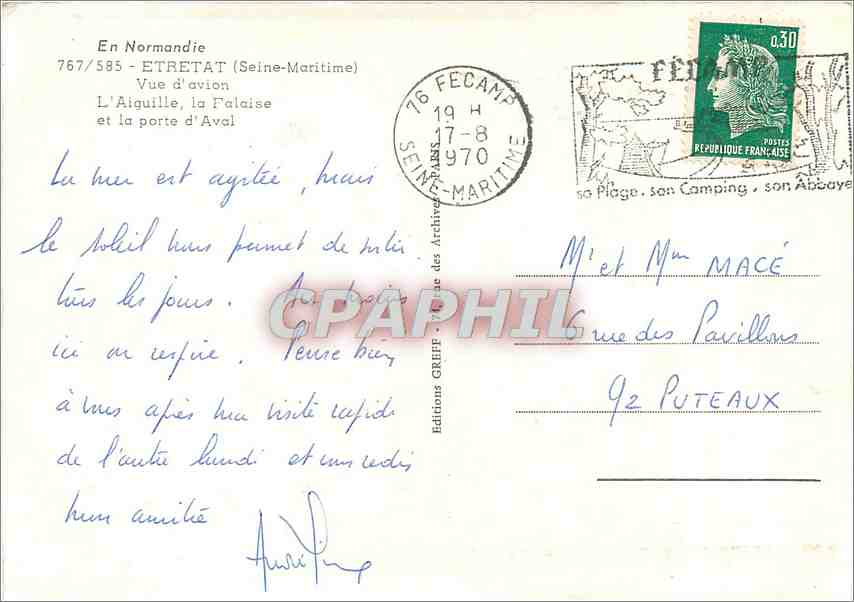 En Normandie
767/585 - ETRETAT (Seine-Maritime)
Vue d'avion
L'Aiguille, la Falaise
et la porte d'Aval
La mer est agitée, mais
le soleil nous permet de sortir
tous les jours. Au moins
ici on respire. Pense bien
à vous après ma visite rapide
de l'autre lundi et vous redis
mon amitié
André
Editions GREFF - 74, rue des Archives - PARIS
76 FECAMP
19 H
17-8
1970
SEINE-MARITIME
FÉCAMP
sa Plage, son Camping, son Abbaye
0,30
POSTES
RÉPUBLIQUE FRANÇAISE
Mr et Mme MACÉ
6 rue des Pavillons
92 PUTEAUX
CPAPHIL